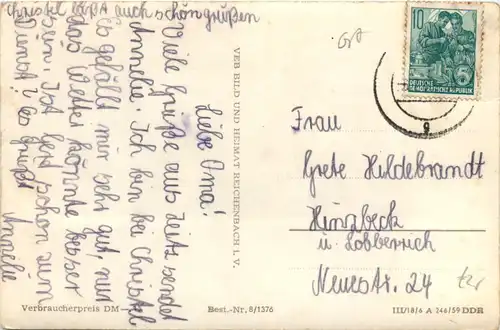 Christel läßt auch schön grüßen
Liebe Oma!
Viele Grüße aus Zeitz sendet
Annelie. Ich bin bei Christel
es gefällt mir sehr gut, nur
das Wetter könnte besser
sein. Ist Gerd schon zum
Dienst? Es grüßt
Annelie
VEB BILD UND HEIMAT REICHENBACH i. V.
10
DEUTSCHE
DEMOKRATISCHE REPUBLIK
5
g
Frau
Grete Hildebrandt
Hinsbeck
ü. Lobberich
Neuestr. 24
Verbraucherpreis DM
Best.-Nr. 8/1376
III/18/6 A 246/59 DDR